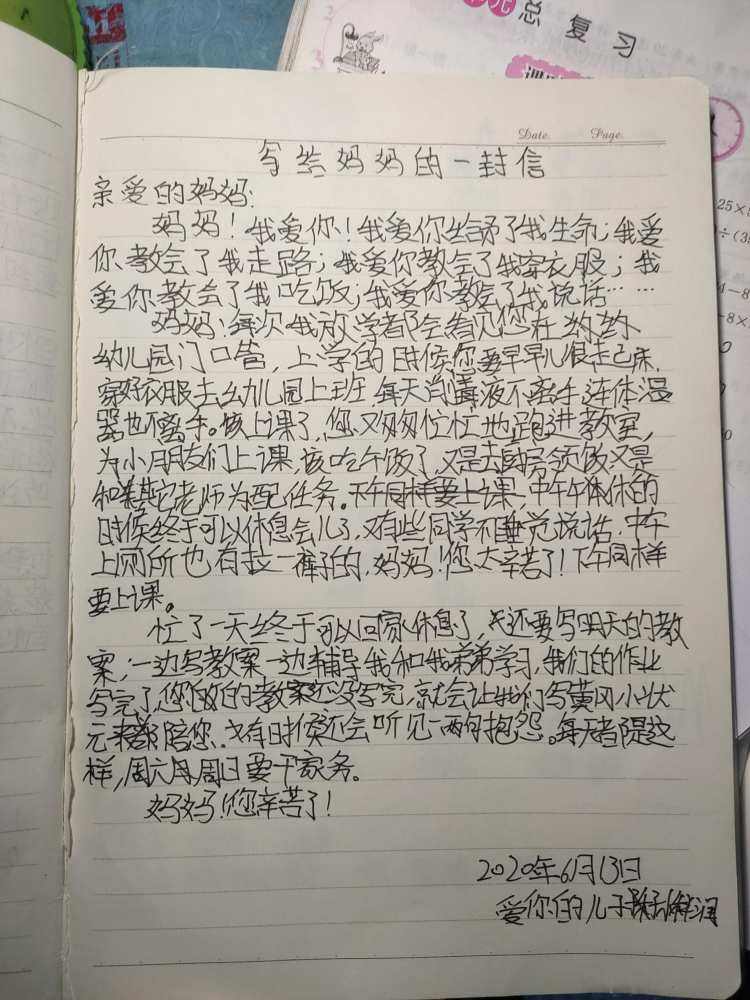 总复习
Date.    Page.
写给妈妈的一封信
亲爱的妈妈:
妈妈!我爱你!我爱你给予了我生命;我爱
你教会了我走路;我爱你教会了我穿衣服;我
爱你教会了我吃饭;我爱你教会了我说话……
妈妈:每次我放学都会看见您在
幼儿园门口,上学的时候你要早早儿很起床,
穿好衣服去幼儿园上班,每天消毒液不离手,连体温
器也不离手。该上课了,您又匆匆忙忙地跑进教室,
为小朋友们上课,该吃午饭了,又是去厨房领饭又是
和其它老师分配任务。下午同样要上课,中午午休的
时候终于可以休息会儿了,又有些同学不睡觉说话,中午
上厕所也有拉一裤子的,妈妈!您太辛苦了!下午同样
要上课。
忙了一天终于可以回家休息了,还要写明天的教
案,一边写教案一边辅导我和我弟弟学习,我们的作业
写完了,您的教案还没写完,就会让我们写黄冈小状
元来陪您,有时候还会听见一两句抱怨。每天都是这
样,周六周日要干家务。
妈妈!您辛苦了!
2020年6月13日
爱你的儿子
25×
÷(3
4-8
-8×
0